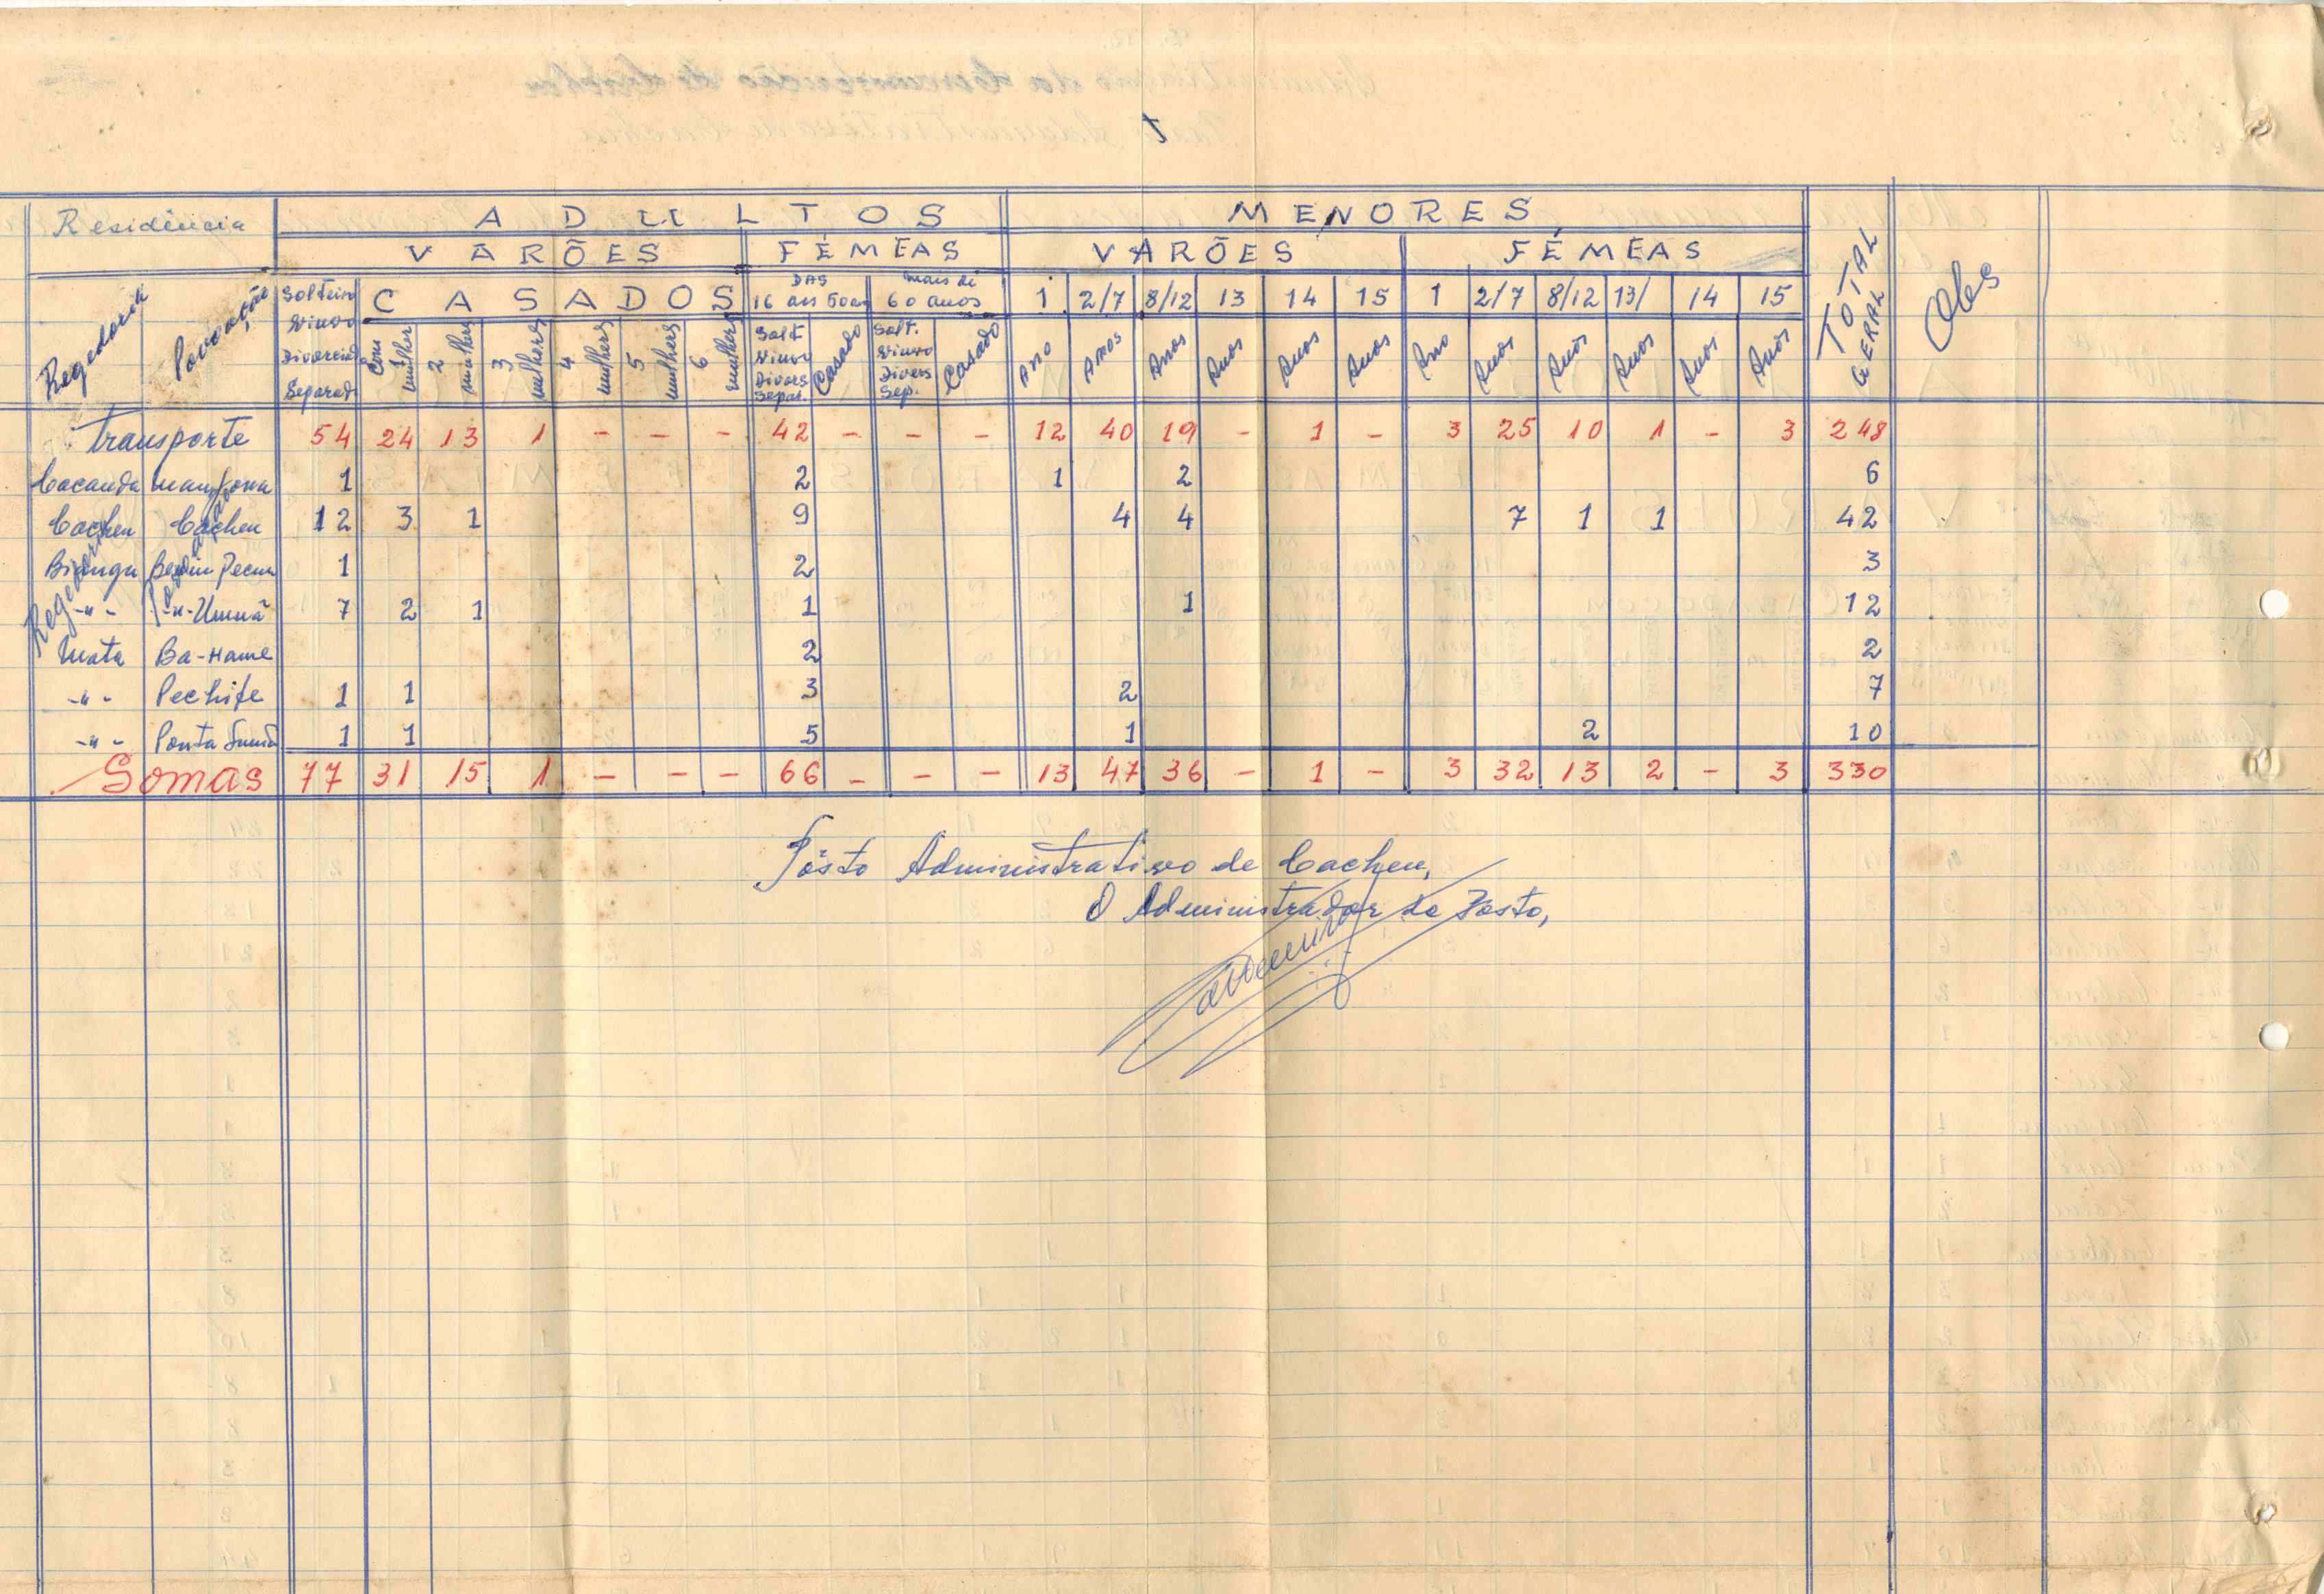 Residência ADULTOS MENORES TOTAL GERAL Obs
VARÕES FÉMEAS VARÕES FÉMEAS
Regedoria Povoação Solteiro Viuvo Divorciad Separad CASADOS DAS 16 ans 60 an mais de 60 anos 1 2/7 8/12 13 14 15 1 2/7 8/12 13/ 14 15
Com 1 mulher 2 mulhers 3 mulhers 4 mulhers 5 mulhers 6 mulhers Solt Viuvo Divors Separ. Casado Solt. Viuvo Divers Sep. Casado Ano Anos Anos Anos Anos Anos Ano Anos Anos Anos Anos Anos
Transporte 54 24 13 1 - - - 42 - - - 12 40 19 - 1 - 3 25 10 1 - 3 248
Cacanda 1 2 1 2 6
Cacheu Cacheu 12 3 1 9 4 4 7 1 1 42
Bianga 1 2 3
-"- -"- 7 2 1 1 1 12
Mata Ba-Name 2 2
-"- Pechife 1 1 3 2 7
-"- Ponta 1 1 5 1 2 10
Regedoria Povoação
Somas 77 31 15 1 - - - 66 - - - 13 47 36 - 1 - 3 32 13 2 - 3 330
Pôsto Administrativo de Cacheu,
O Administrador do Posto,